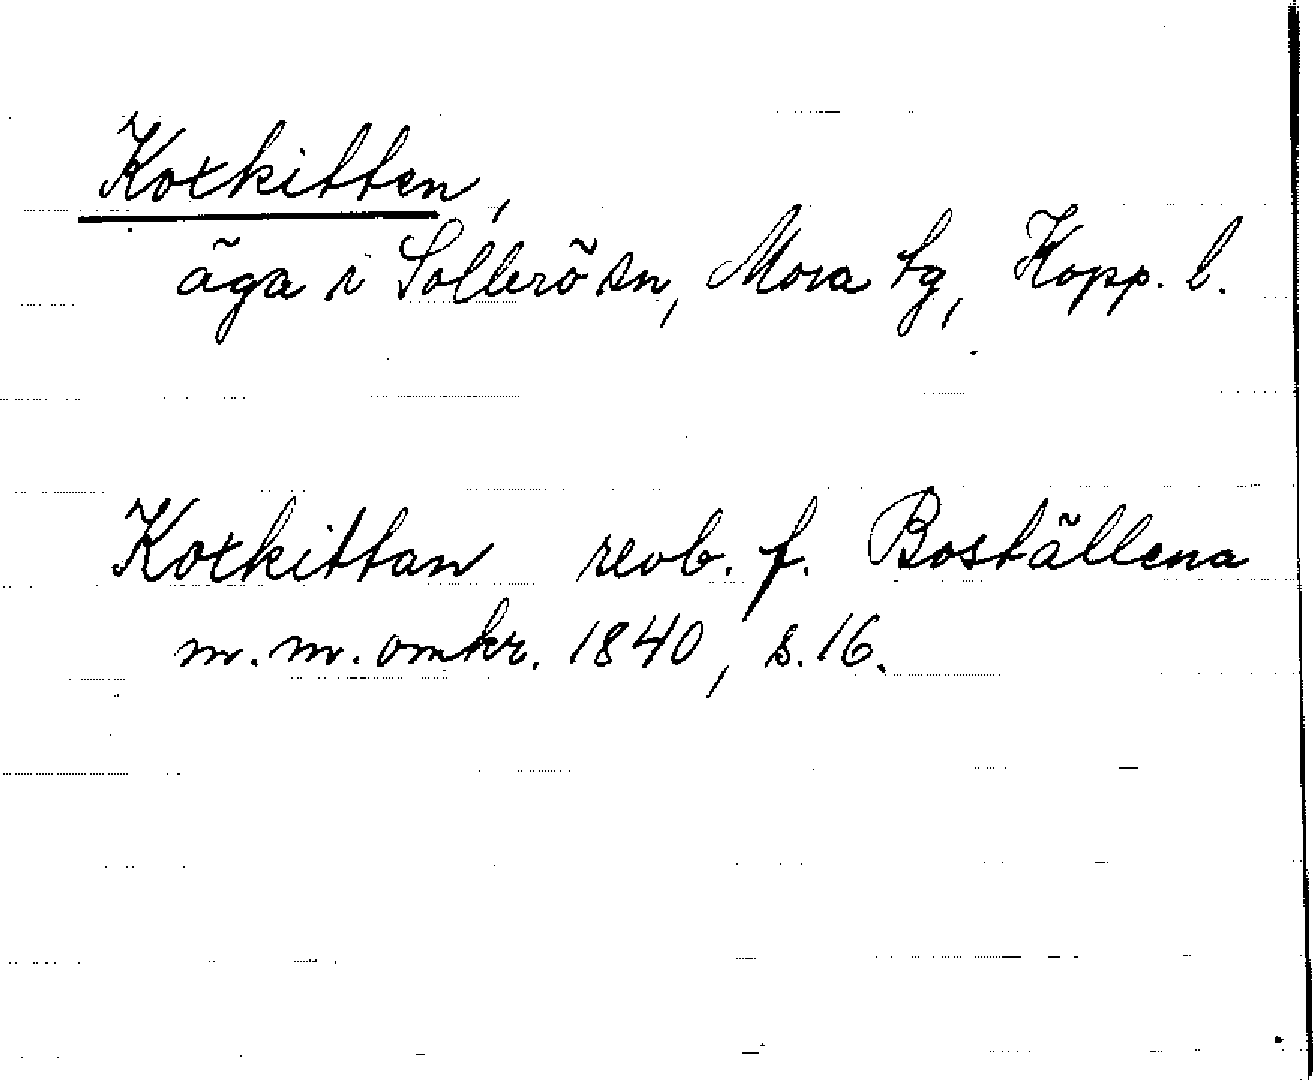 Koxkitten,
äga i Sollerö sn, Mora tg, Kopp. l.
Koxkittan revb. f. Boställena
m.m. omkr. 1840, s. 16.